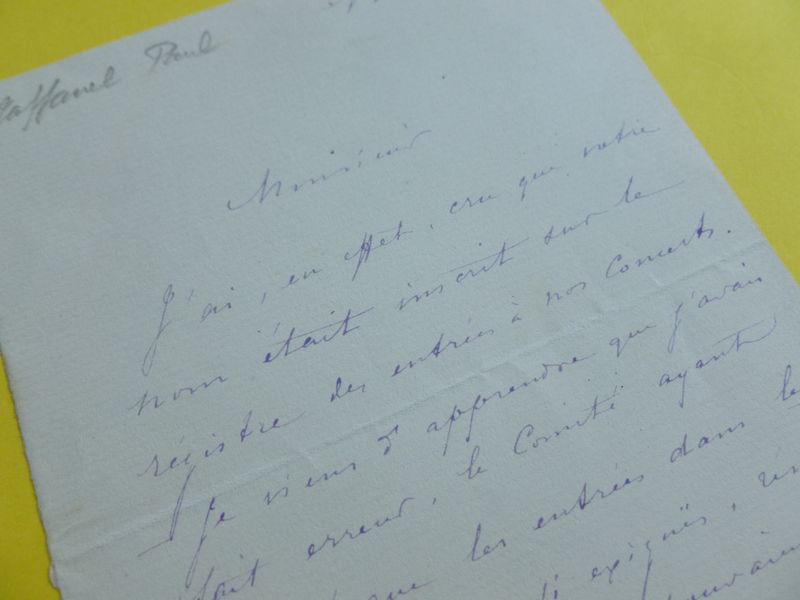 Taffanel Paul
Monsieur
J'ai, en effet, cru que votre
nom était inscrit sur le
régistre des entrées à nos Concerts.
Je viens d'apprendre que j'avais
fait erreur, le Comité ayant
que les entrées dans
exigüs,